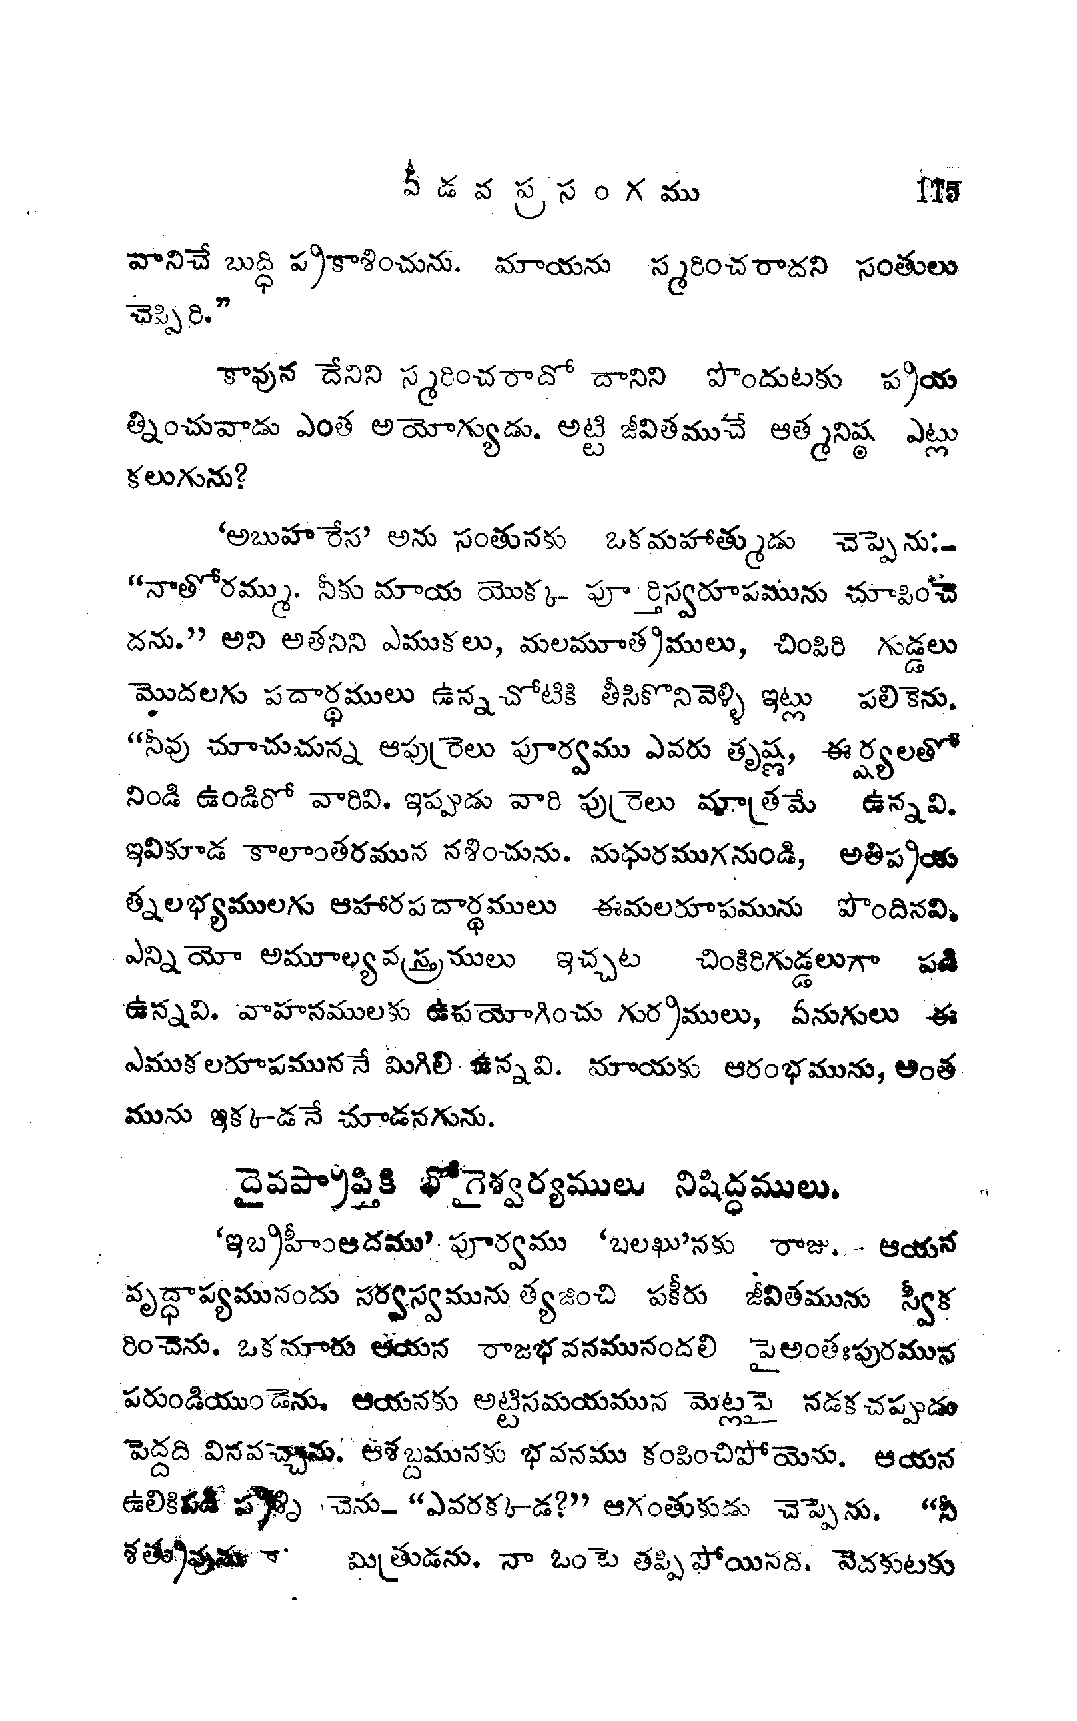 వీడవ ప్రసంగము 115
వానిచే బుద్ధి ప్రకాశించును. మాయను స్మరించరాదని సంతులు
చెప్పిరి.”
కావున దేనిని స్మరించరాదో దానిని పొందుటకు ప్రయ
త్నించువాడు ఎంత అయోగ్యుడు. అట్టి జీవితముచే ఆత్మనిష్ఠ ఎట్లు
కలుగును?
‘అబుహారేస’ అను సంతునకు ఒకమహాత్ముడు చెప్పెను:—
“నాతోరమ్ము. నీకు మాయ యొక్క పూర్తిస్వరూపమును చూపించె
దను.” అని అతనిని ఎముకలు, మలమూత్రములు, చింపిరి గుడ్డలు
మొదలగు పదార్థములు ఉన్నచోటికి తీసికొనివెళ్ళి ఇట్లు పలికెను.
“నీవు చూచుచున్న ఆపుర్రెలు పూర్వము ఎవరు తృష్ణ, ఈర్ష్యలతో
నిండి ఉండిరో వారివి. ఇప్పుడు వారి పుర్రెలు మాత్రమే ఉన్నవి.
ఇవికూడ కాలాంతరమున నశించును. మధురముగనుండి, అతిప్రయ
త్నలభ్యములగు ఆహారపదార్థములు ఈమలరూపమును పొందినవి.
ఎన్నియో అమూల్యవస్త్రములు ఇచ్చట చింకిరిగుడ్డలుగా పడి
ఉన్నవి. వాహనములకు ఉపయోగించు గుర్రములు, ఏనుగులు ఈ
ఎముకలరూపముననే మిగిలి ఉన్నవి. మాయకు ఆరంభమును, అంత
మును ఇక్కడనే చూడనగును.
దైవప్రాప్తికి భోగైశ్వర్యములు నిషిద్ధములు.
‘ఇబ్రహీంఆదము’ పూర్వము ‘బలఖు’నకు రాజు. ఆయన
వృద్ధాప్యమునందు సర్వస్వమును త్యజించి పకీరు జీవితమును స్వీక
రించెను. ఒకనూరు ఆయన రాజభవనమునందలి పైఅంతఃపురమున
పరుండియుండెను. ఆయనకు అట్టిసమయమున మెట్లపై నడకచప్పుడు
పెద్దది వినవచ్చెను. ఆశబ్దమునకు భవనము కంపించిపోయెను. ఆయన
ఉలికిపడి ప్రశ్నించెను— “ఎవరక్కడ?” ఆగంతుకుడు చెప్పెను. “నీ
శత్రువును మిత్రుడను. నా ఒంటె తప్పిపోయినది. వెదకుటకు